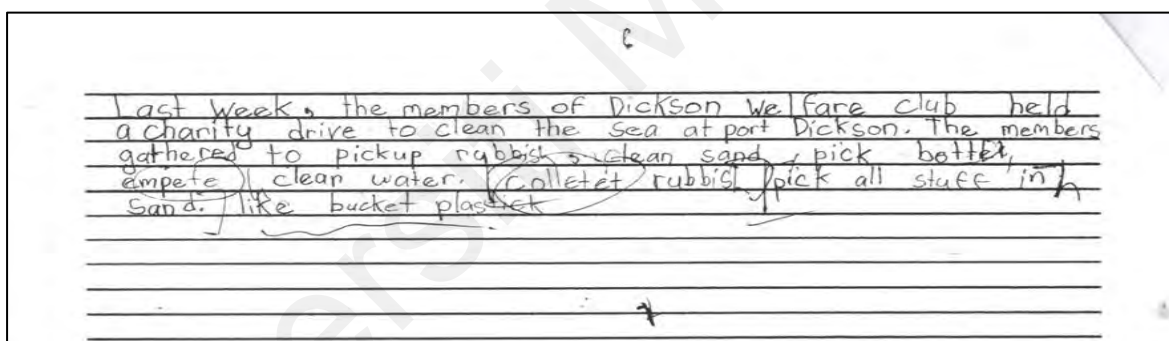 Last Week, the members of Dickson Welfare club held
a charity drive to clean the sea at port Dickson. The members
gathered to pickup rubbish, clean sand, pick bottel,
empete clean water. colletet rubbish pick all stuff in
sand. like bucket plastick